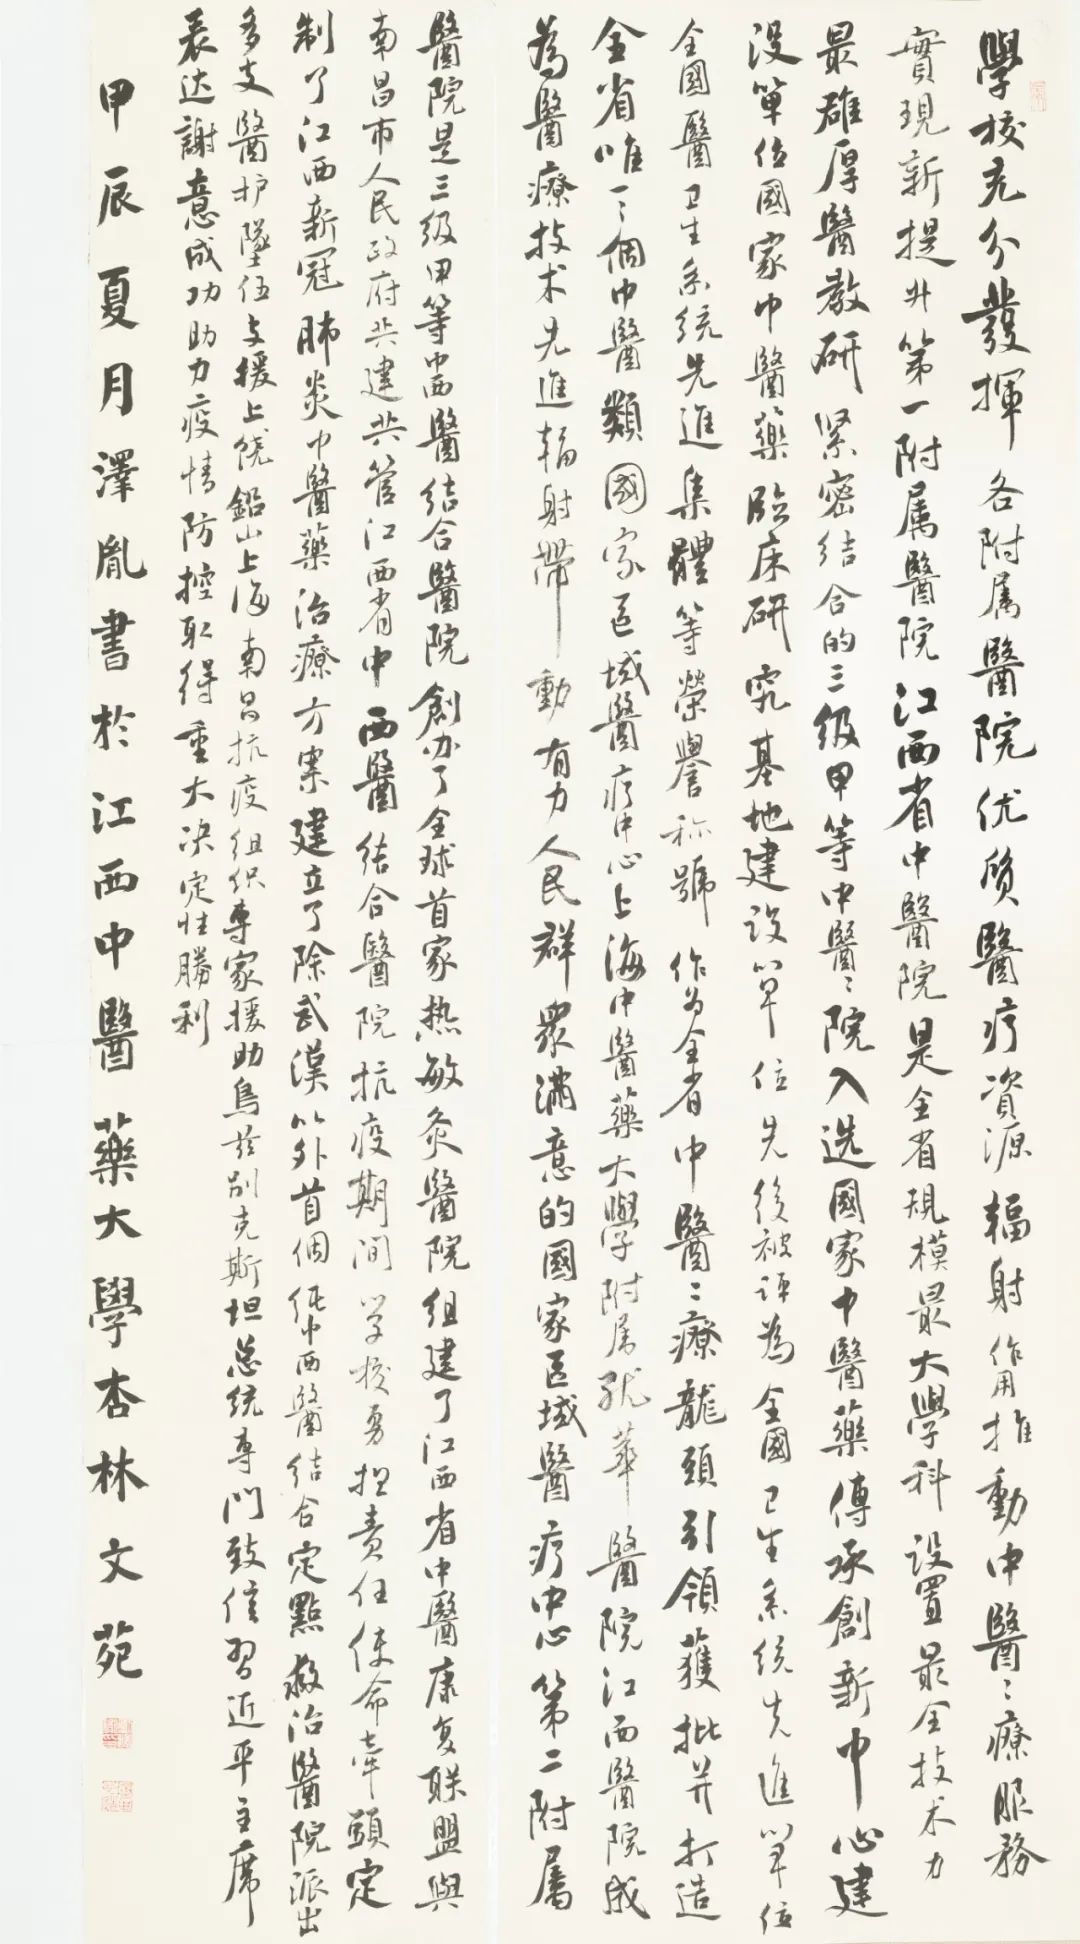 學校充分發揮各附属醫院优质醫疗資源辐射作用推動中醫〻療服務
實現新提升第一附属醫院江西省中醫院是全省規模最大學科設置最全技术力
最雄厚醫教研紧密结合的三级甲等中醫〻院入选國家中醫藥傳承創新中心建
没單位國家中醫藥臨床研究基地建设单位先後被评為全國卫生系统先進单位
全國醫卫生系统先進集體等榮譽称號作为全省中醫〻療龍頭引領獲批并打造
全省唯一〻個中醫類國家区域醫疗中心上海中醫藥大學附属龙華醫院江西醫院成
為醫療技术先進辐射帶動有力人民群眾滿意的國家区域醫疗中心第二附属
醫院是三级甲等中西醫结合醫院創办了全球首家热敏灸醫院组建了江西省中醫康复联盟與
南昌市人民政府共建共管江西省中西醫结合醫院抗疫期间学校勇担责任使命牵頭定
制了江西新冠肺炎中醫藥治療方案建立了除武漢以外首個纯中西醫结合定點救治醫院派出
多支醫护隊伍支援上饶鉛山上海南昌抗疫组织專家援助乌兹别克斯坦总统專门致信習近平主席
表达謝意成功助力疫情防控取得重大决定性勝利
甲辰夏月澤胤書於江西中醫藥大學杏林文苑